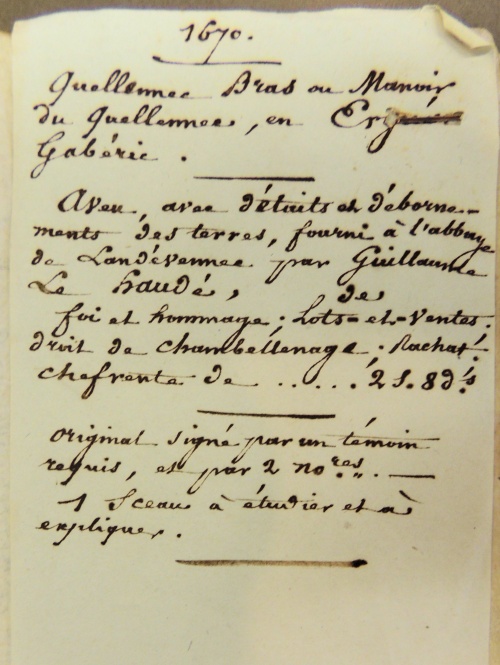 1670.
Quellennec Bras ou Manoir
du Quellennec, en Ergué
Gabéric.
Aveu, avec détails et déborne-
ments des terres, fourni à l'abbaye
de Landévennec par Guillaume
Le haudé, de
foi et hommage; Lots-et-Ventes;
droit de chambellenage; Rachat;
chefrente de ...... 2 s. 8 d.rs
original signé par un témoin
requis, et par 2 no.res „. —
1 Sceau à étudier et à
expliquer.